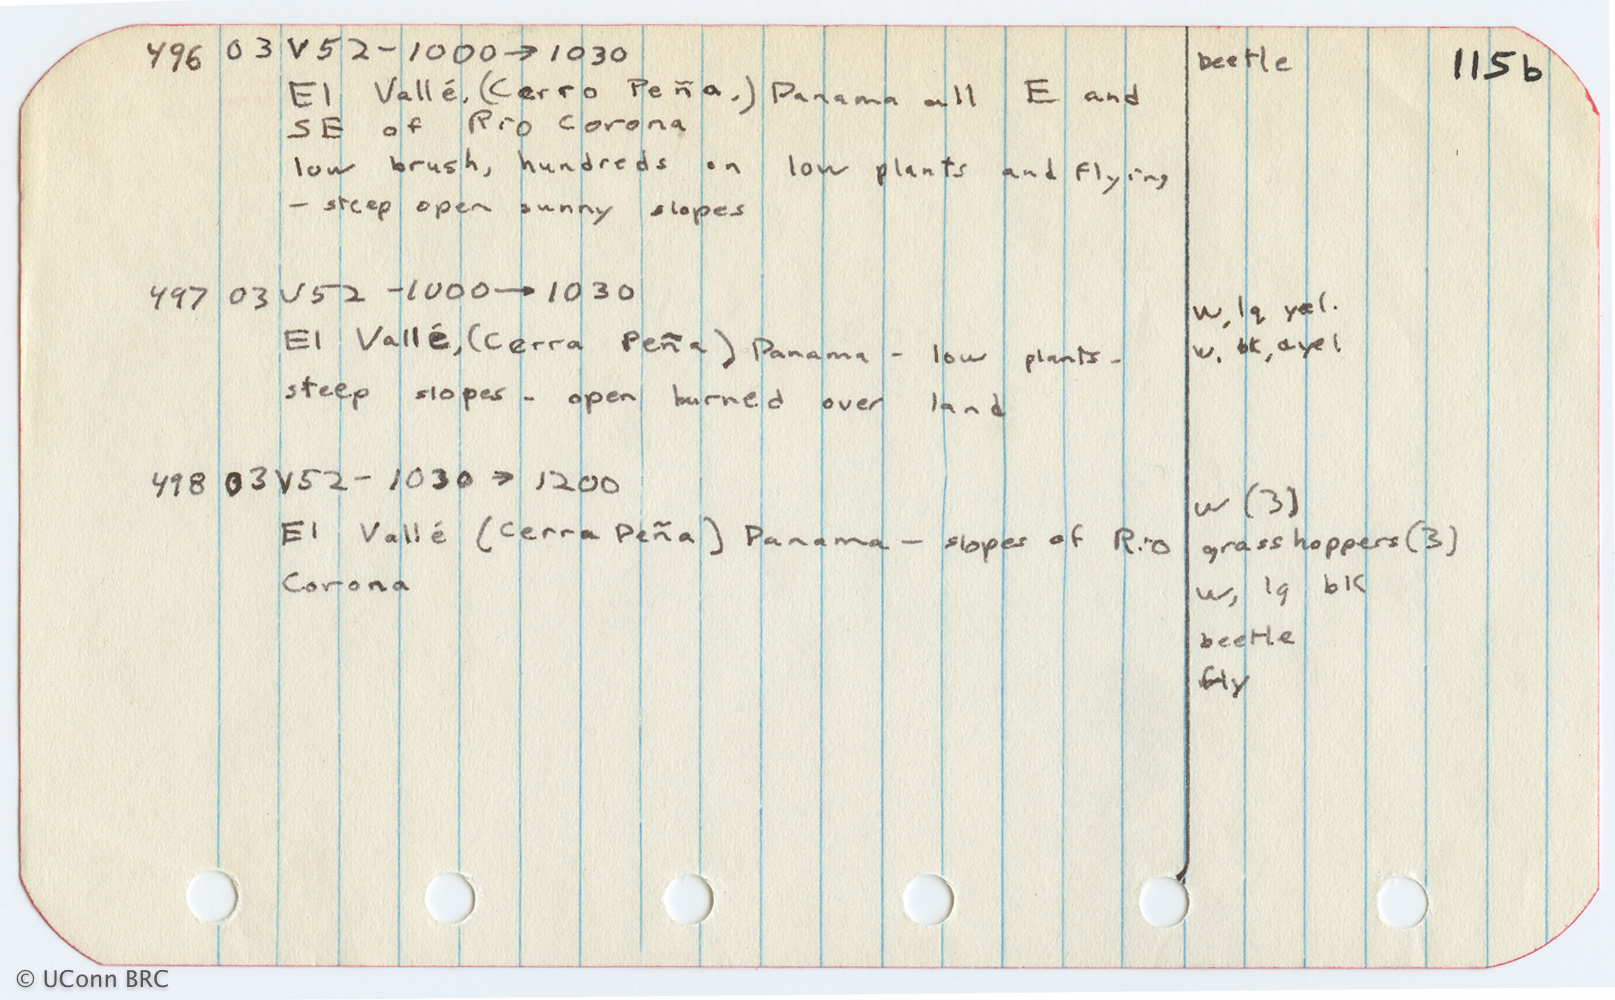 496 03 V 52 - 1000 → 1030
El Vallé, (Cerro Peña,) Panama all E and
SE of Rio Corona
low brush, hundreds on low plants and flying
- steep open sunny slopes
beetle
115b
497 03 V 52 - 1000 → 1030
El Vallé, (Cerra Peña) Panama - low plants -
steep slopes - open burned over land
w, lg yel.
w, bk, yel.
498 03 V 52 - 1030 → 1200
El Vallé (Cerra Peña) Panama - slopes of Rio
Corona
w (3)
grasshoppers (3)
w, lg bk
beetle
fly
© UConn BRC